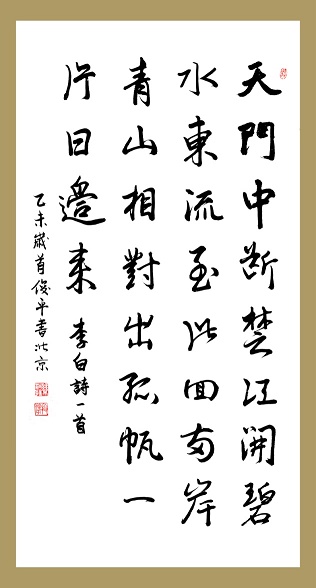 天門中断楚江開碧
水東流至此回两岸
青山相對出孤帆一
片日邊来 李白詩一首
乙未歲首俊平書北京